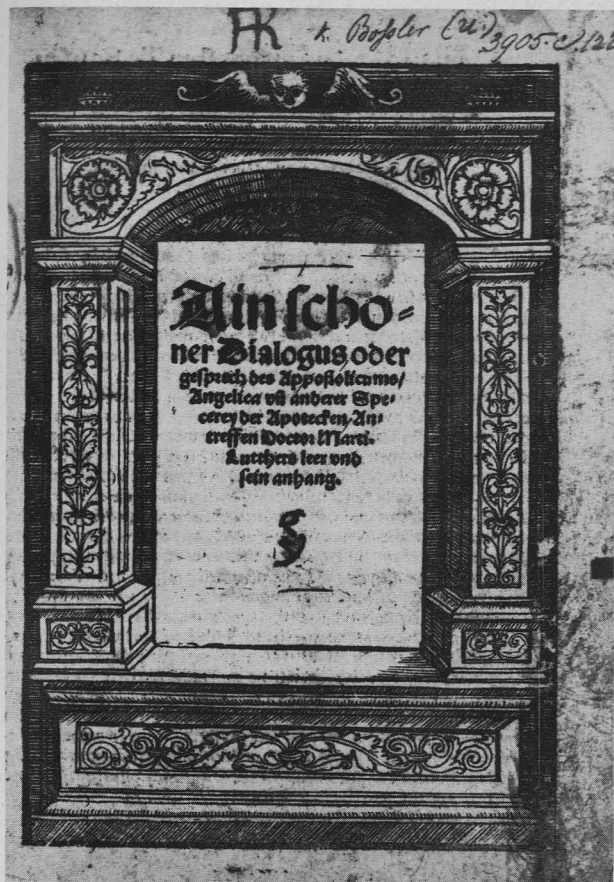 HK k. Boßler (u:) 3905.c.122
Ain scho⸗
ner Dialogus oder
gesprech des Appostolicums/
Angelica vñ anderer Spe⸗
cerey der Apotecken/ An⸗
treffen Doctor Marti.
Lutthers leer vnd
sein anhang.